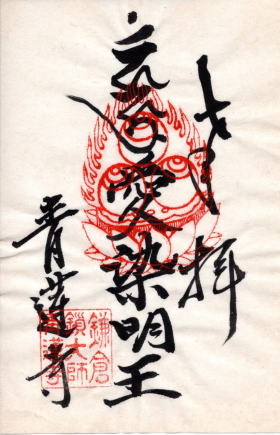 奉拝
愛染明王
青蓮寺
鎌倉
鎖大師
青蓮寺